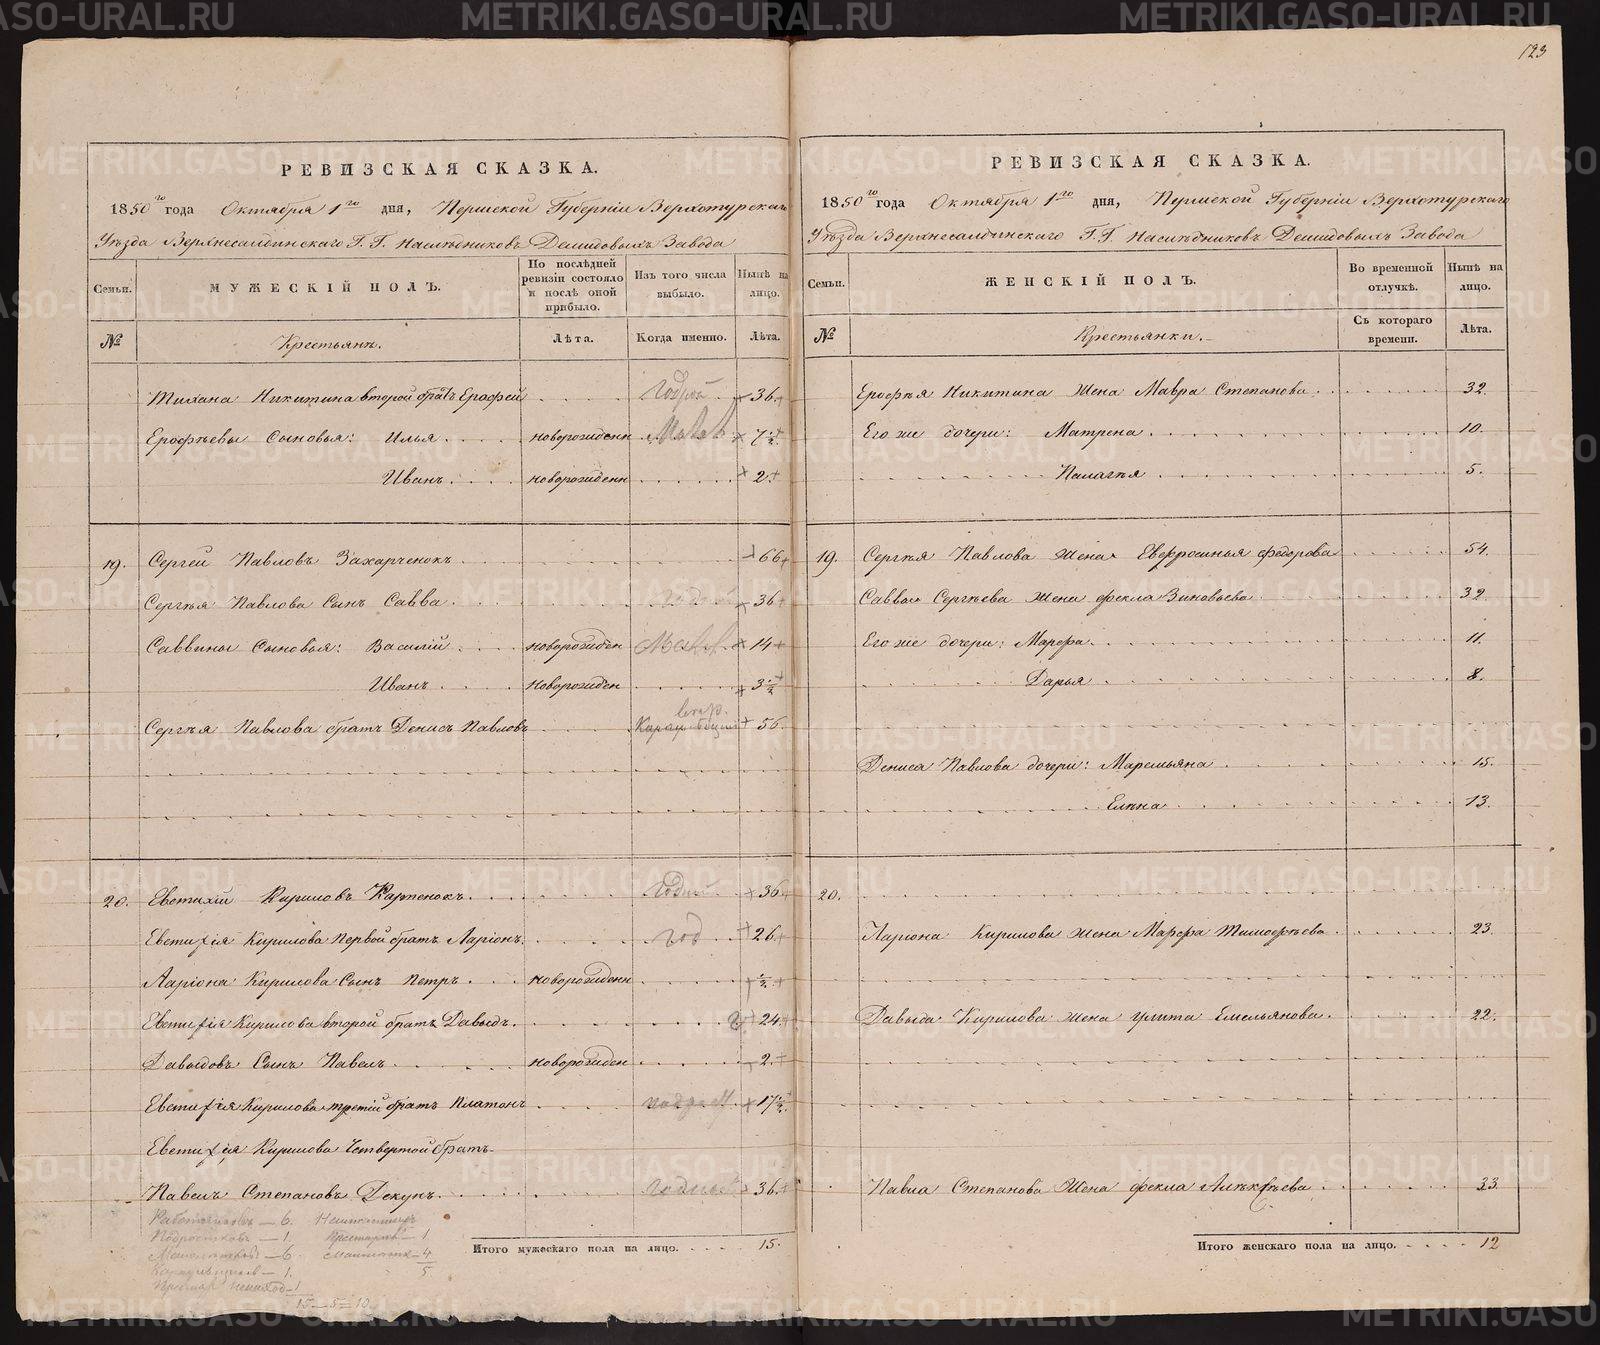 123
РЕВИЗСКАЯ СКАЗКА.
1850го года Октября 1го дня, Пермской Губерніи Верхотурскаго
Уѣзда Верхнесалдинскаго Г.Г. Наслѣдниковъ Демидовыхъ Завода
Семьи. МУЖЕСКІЙ ПОЛЪ. По послѣдней ревизіи состояло и послѣ оной прибыло. Изъ того числа выбыло. Нынѣ на лицо.
№ Крестьянъ. Лѣта. Когда именно. Лѣта.
Никитина второй братъ Ерофей Годной 36.
Ерофѣевы Сыновья: Илья новорожденн 7 ½
Иванъ новорожденн 2.
19. Сергей Павловъ Захарченокъ 66
Сергѣя Павлова Сынъ Савва 36
Саввины Сыновья: Василій новорожден 14
Иванъ новорожден 3 ½
Сергѣя Павлова братъ Денисъ Павловъ 56.
20. Евстихій Кириловъ Карпенокъ Годной 36.
Евстифія Кирилова Первой братъ Ларіонъ год 26.
Ларіона Кирилова Сынъ Петръ новорожденн ½
Евстифія Кирилова второй братъ Давыдъ 24.
Давыдовъ Сынъ Павелъ новорожден 2.
Евстифія Кирилова третій братъ Платонъ 17 ½
Евстифія Кирилова Четвертой братъ
Павелъ Степановъ Декунъ 36.
Итого мужескаго пола на лицо. 15.
Работников — 6.
Подростков — 1.
— 6.
— 1.
— 1
1
4
5
15 — 5 = 10
РЕВИЗСКАЯ СКАЗКА.
1850го года Октября 1го дня, Пермской Губерніи Верхотурскаго
Уѣзда Верхнесалдинскаго Г.Г. Наслѣдниковъ Демидовыхъ Завода
Семьи. ЖЕНСКІЙ ПОЛЪ. Во временной отлучкѣ. Нынѣ на лицо.
№ Крестьянки. Съ котораго времени. Лѣта.
Ерофѣя Никитина Жена Мавра Степанова 32.
Его же дочери: Матрена 10.
Палагѣя 5.
19. Сергѣя Павлова жена Евфросинья федорова 54.
Саввы Сергѣева жена фекла Зиновьева 32.
Его же дочери: Марфа 11.
Дарья 8.
Дениса Павлова дочери: Маремьяна 15.
Елѣна 13.
20.
Ларіона Кирилова жена Марфа Тимофѣева 23.
Давыда Кирилова жена улита Емельянова 22.
Павла Степанова Жена фекла Алѣксѣева 33.
Итого женскаго пола на лицо. 12
METRIKI.GASO-URAL.RU